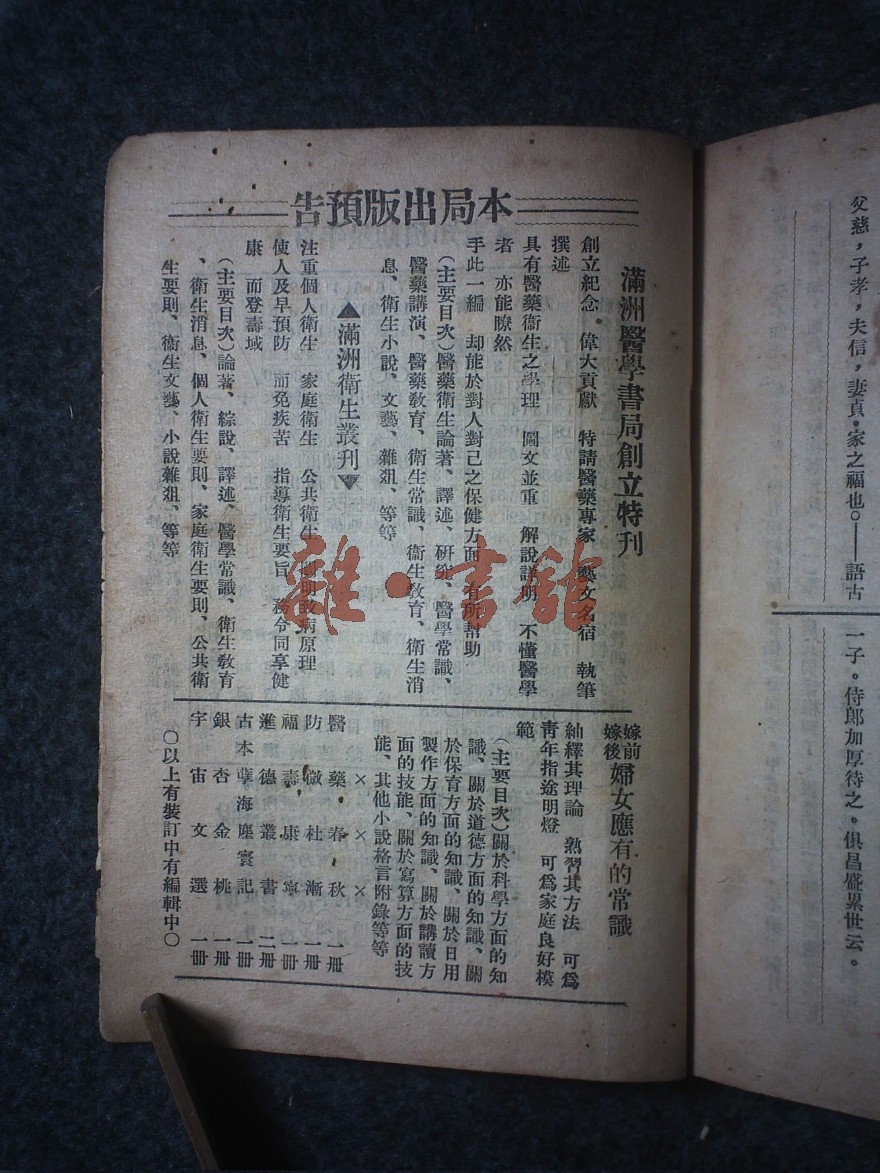 父慈，子孝，夫信，妻貞。家之福也。——語古
一子。侍郎加厚待之。俱昌盛累世云。
本局出版預告
滿洲醫學書局創立特刊
創立紀念 偉大貢獻 特請醫藥專家 藝文名宿 執筆
撰述
具有醫藥衞生之學理 圖文並重 解說詳明 不懂醫學
者 亦能瞭然
手此一編 却能於對人對己之保健方面 有所幫助
（主要目次）醫藥衞生論著、譯述、研究、醫學常識、
醫藥講演、醫藥敎育、衞生常識、衞生敎育、衞生消
息、衞生小說、文藝、雜爼、等等
▲滿洲衞生叢刊▼
注重個人衞生 家庭衞生 公共衞生 闡明致病原理
使人及早預防 而免疾苦 指導衞生要旨 務令同享健
康 而登壽域
（主要目次）論著、綜說、譯述、醫學常識、衞生敎育
、衞生消息、個人衞生要則、家庭衞生要則、公共衞
生要則、衞生文藝、小說雜爼、等等
嫁前
嫁後
婦女應有的常識
紬繹其理論 熟習其方法 可爲
靑年指途明燈 可爲家庭良好模
範
（主要目次）關於科學方面的知
識、關於道德方面的知識、關
於保育方面的知識、關於日用
製作方面的知識、關於講讀方
面的技能、關於寫算方面的技
能、其他小說格言附錄等等
× × ×
醫藥春秋 一冊
防微杜漸 一冊
福壽康寧 一冊
進德叢書 二冊
古本孽海塵寰記 一冊
銀杏金桃 一冊
宇宙文選 一冊
〇以上有裝訂中有編輯中〇
雜·書館